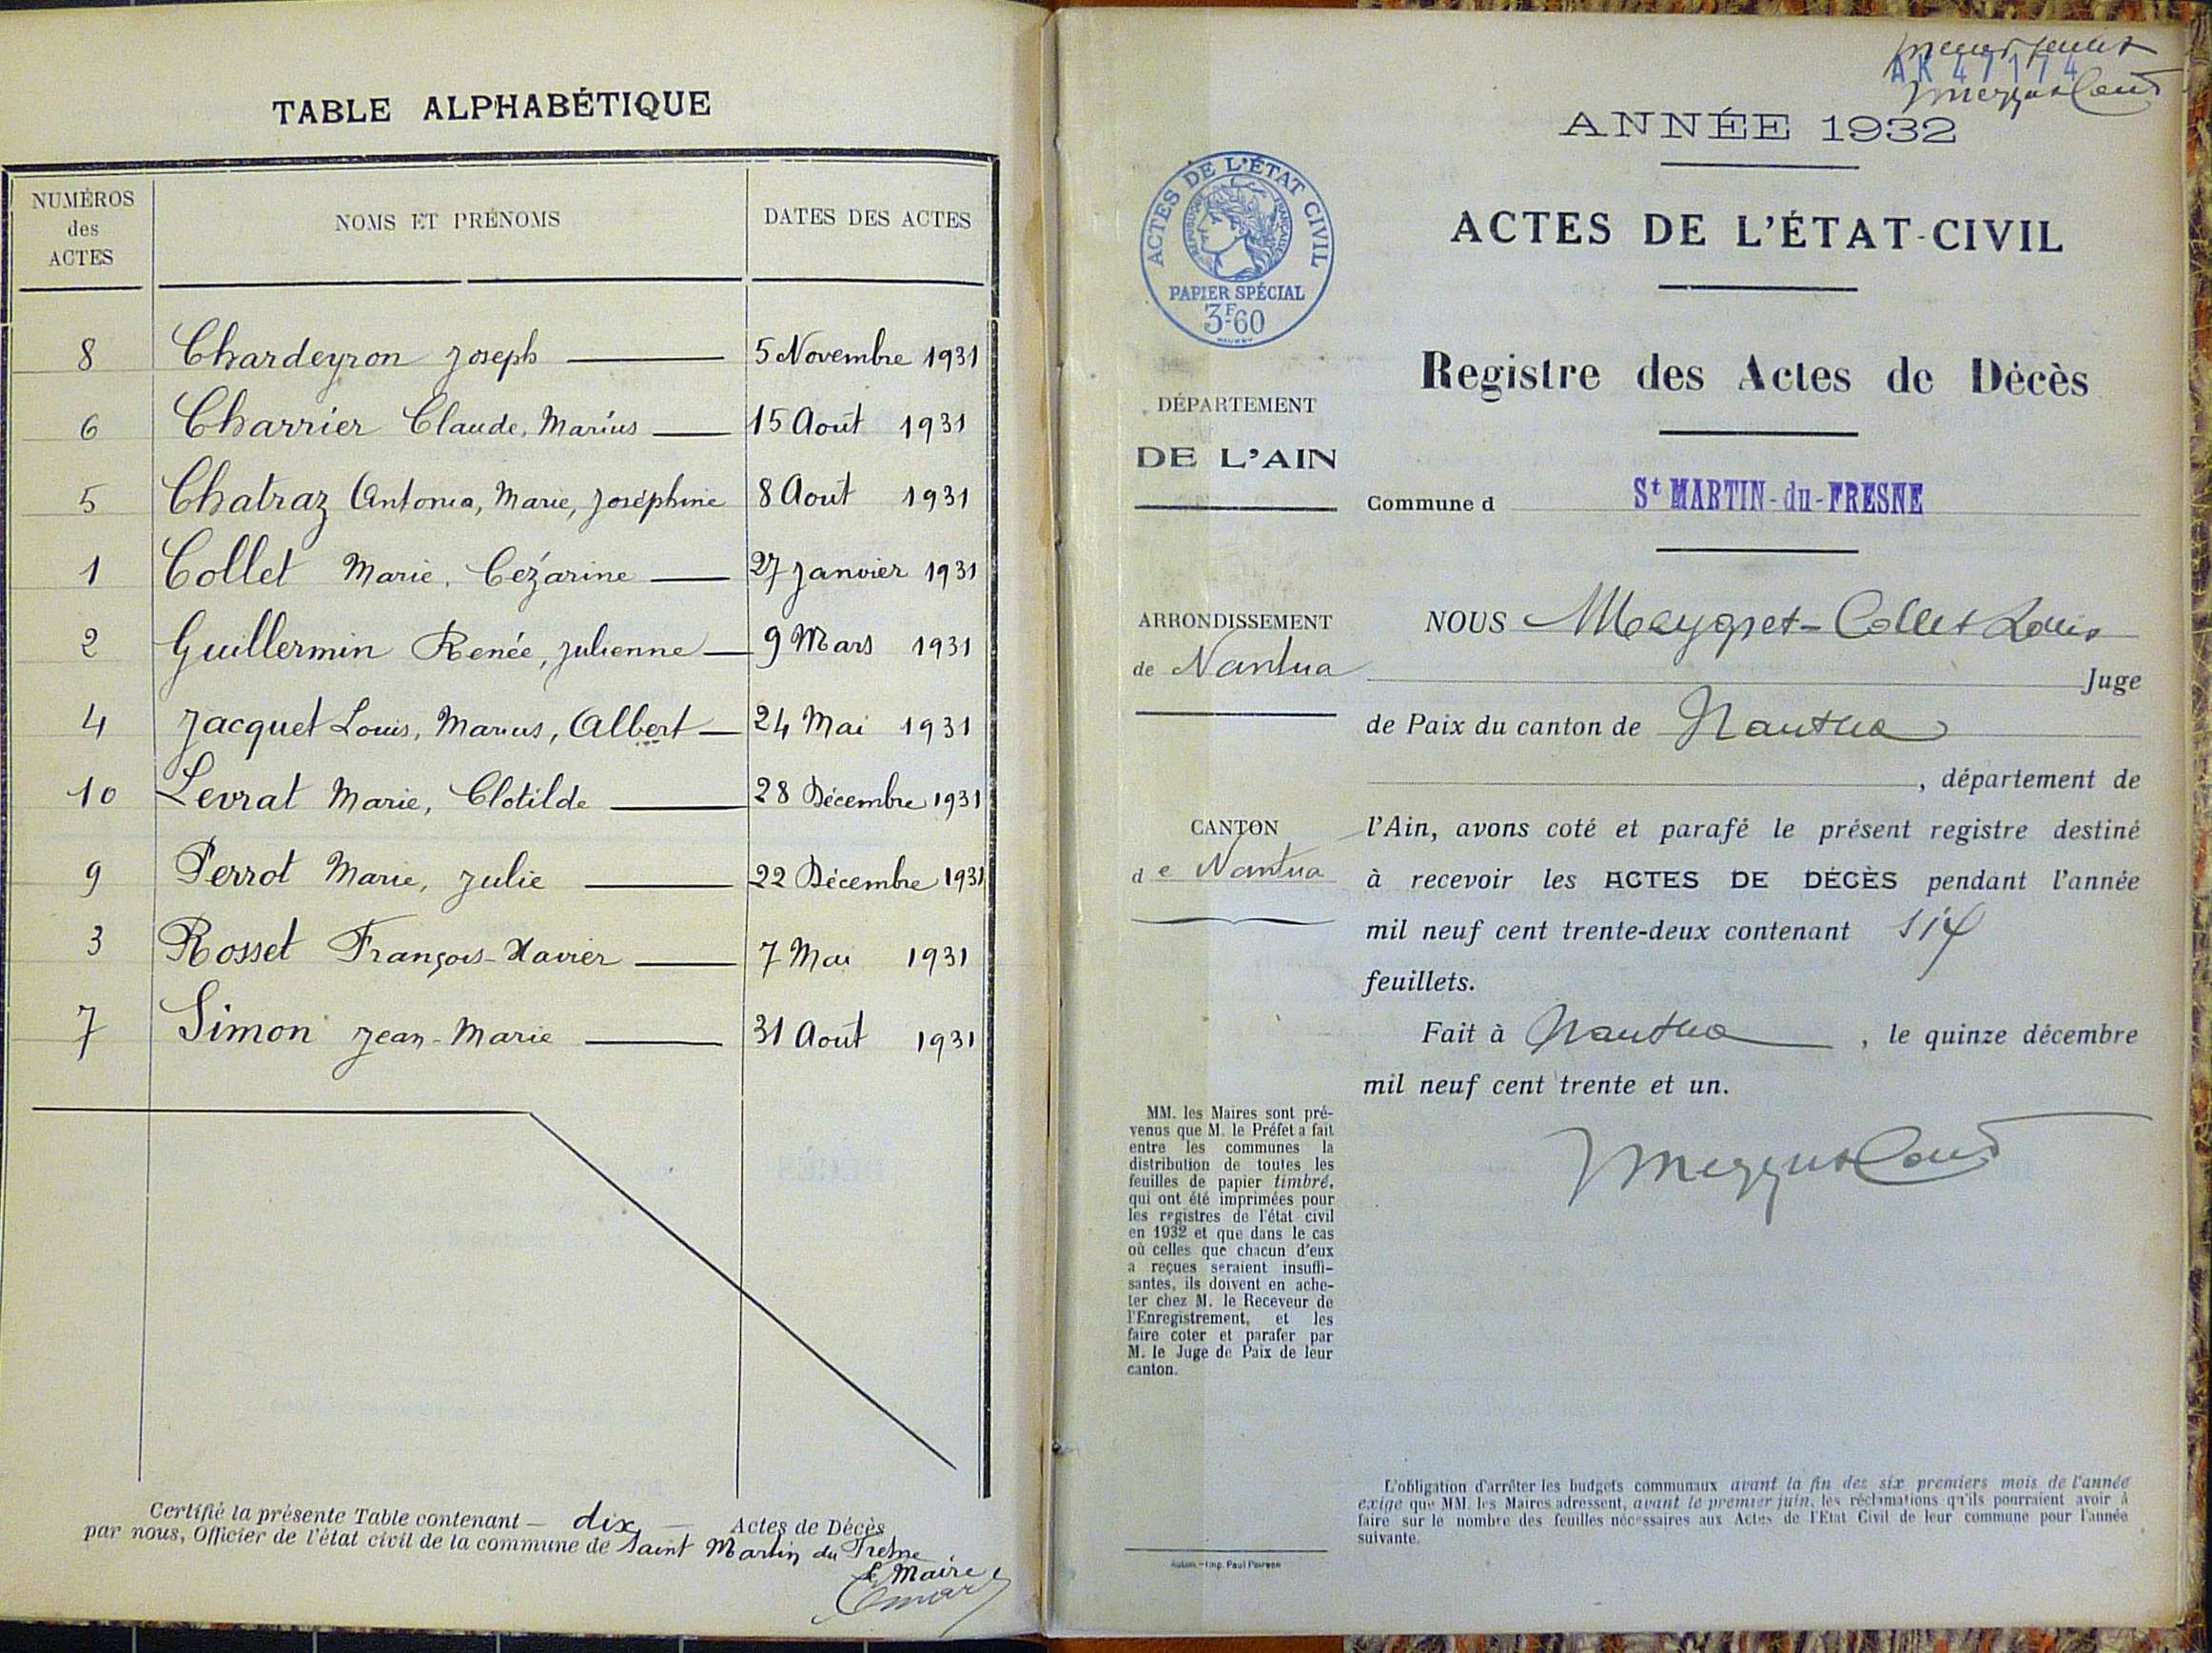 TABLE ALPHABÉTIQUE
NUMÉROS des ACTES NOMS ET PRÉNOMS DATES DES ACTES
8 Chardeyron Joseph 5 Novembre 1931
6 Charrier Claude, Marius 15 Août 1931
5 Chatraz Antonia, Marie, Joséphine 8 Aout 1931
1 Collet Marie, Cézarine 27 Janvier 1931
2 Guillermin Renée, Julienne 9 Mars 1931
4 Jacquet Louis, Marius, Albert 24 Mai 1931
10 Levrat Marie, Clotilde 28 Décembre 1931
9 Perrot Marie, Julie 22 Décembre 1931
3 Rosset François-Xavier 7 Mai 1931
7 Simon Jean-Marie 31 Août 1931
Certifié la présente Table contenant dix Actes de Décès
par nous, Officier de l'état civil de la commune de Saint Martin du Fresne
Le Maire,
AK 47174
ANNÉE 1932
ACTES DE L'ÉTAT CIVIL
RÉPUBLIQUE FRANÇAISE
PAPIER SPÉCIAL
3F60
ACTES DE L'ÉTAT-CIVIL
Registre des Actes de Décès
DÉPARTEMENT
DE L'AIN
Commune d St MARTIN-du-FRESNE
ARRONDISSEMENT
de Nantua
CANTON
de Nantua
NOUS Meygret-Collet Louis
Juge
de Paix du canton de Nantua
, département de
l'Ain, avons coté et parafé le présent registre destiné
à recevoir les ACTES DE DÉCÈS pendant l'année
mil neuf cent trente-deux contenant six
feuillets.
Fait à Nantua, le quinze décembre
mil neuf cent trente et un.
MM. les Maires sont pré-
venus que M. le Préfet a fait
entre les communes la
distribution de toutes les
feuilles de papier timbré,
qui ont été imprimées pour
les registres de l'état civil
en 1932 et que dans le cas
où celles que chacun d'eux
a reçues seraient insuffi-
santes, ils doivent en ache-
ter chez M. le Receveur de
l'Enregistrement, et les
faire coter et parafer par
M. le Juge de Paix de leur
canton.
L'obligation d'arrêter les budgets communaux avant la fin des six premiers mois de l'année
exige que MM. les Maires adressent, avant le premier juin, les réclamations qu'ils pourraient avoir à
faire sur le nombre des feuilles nécessaires aux Actes de l'Etat Civil de leur commune pour l'année
suivante.